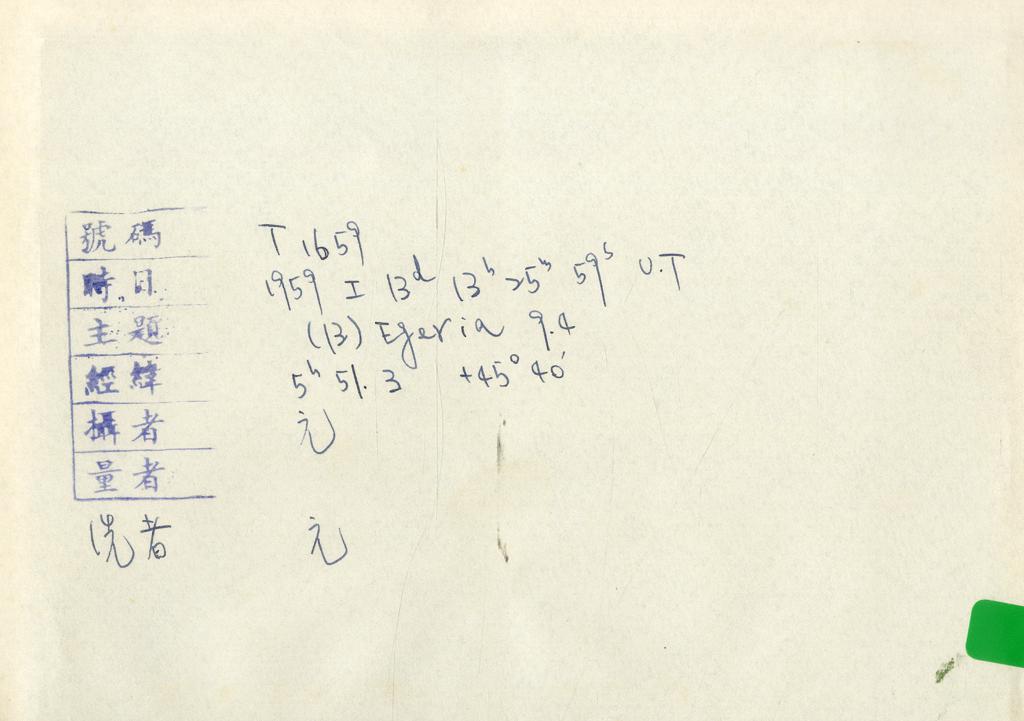 號碼 T 1659
時日 1959 I 13d 13h 25m 59s U.T
主題 (13) Egeria 9.4
經緯 5h 51.3 +45° 40'
攝者 元
量者
洗者 元